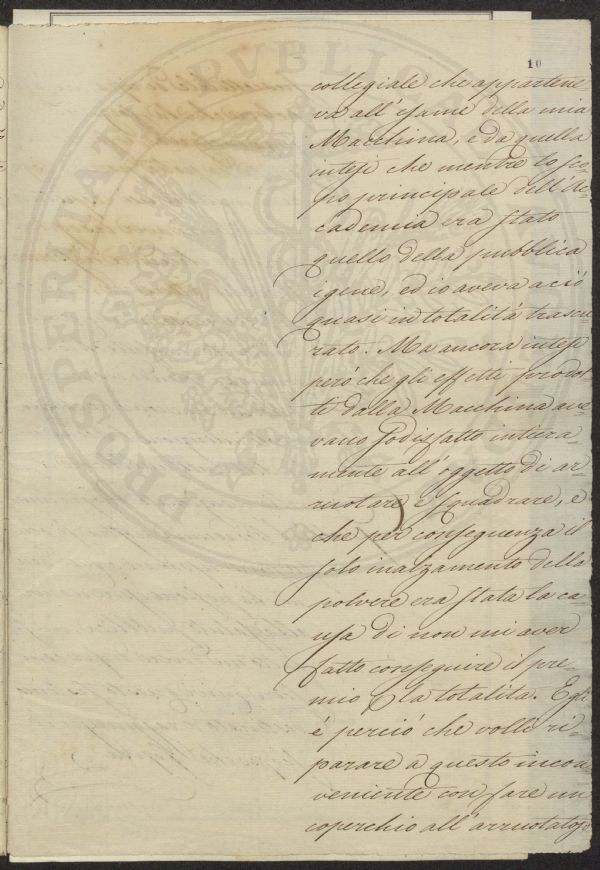 10
collegiale che appartene
va all'esame della mia
Macchina, e da quella
intesi che mentre lo sco-
po principale dell'Ac-
cademia era stato
quello della pubblica
igene, ed io aveva a ciò
quasi in totalità trascu-
rato. Ma ancora intesi
però che gli effetti prodot-
ti dalla Macchina ave-
vano sodisfatto intiera-
mente all'oggetto di ar-
ruotare e squadrare, e
che per conseguenza il
solo inalzamento della
polvere era stata la ca-
usa di non mi aver
fatto conseguire il pre-
mio la totalità. Egli
è perciò che volli ri-
parare a questo incon
veniente con fare un
coperchio all'arruotatojo
PROSPERITATI PVBLICAE